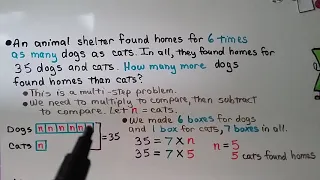 • An animal shelter found homes for 6 times
as many dogs as cats. In all, they found homes for
35 dogs and cats. How many more dogs
found homes than cats?
• This is a multi-step problem.
• We need to multiply to compare, then subtract
to compare. Let n = cats.
Dogs n n n n n
Cats n
= 35
• We made 6 boxes for dogs
and 1 box for cats, 7 boxes in all.
35 = 7 x n n = 5
35 = 7 x 5 5 cats found homes